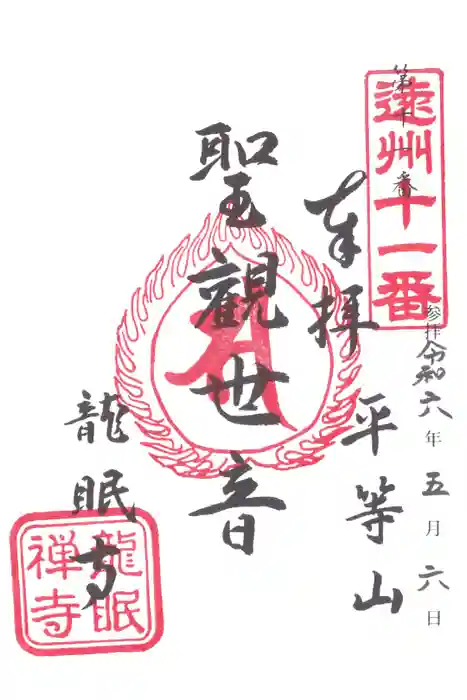 第十一番
遠州十一番
参拝令和六年五月六日
奉拝
平等山
聖観世音
龍眠寺
龍眠禅寺